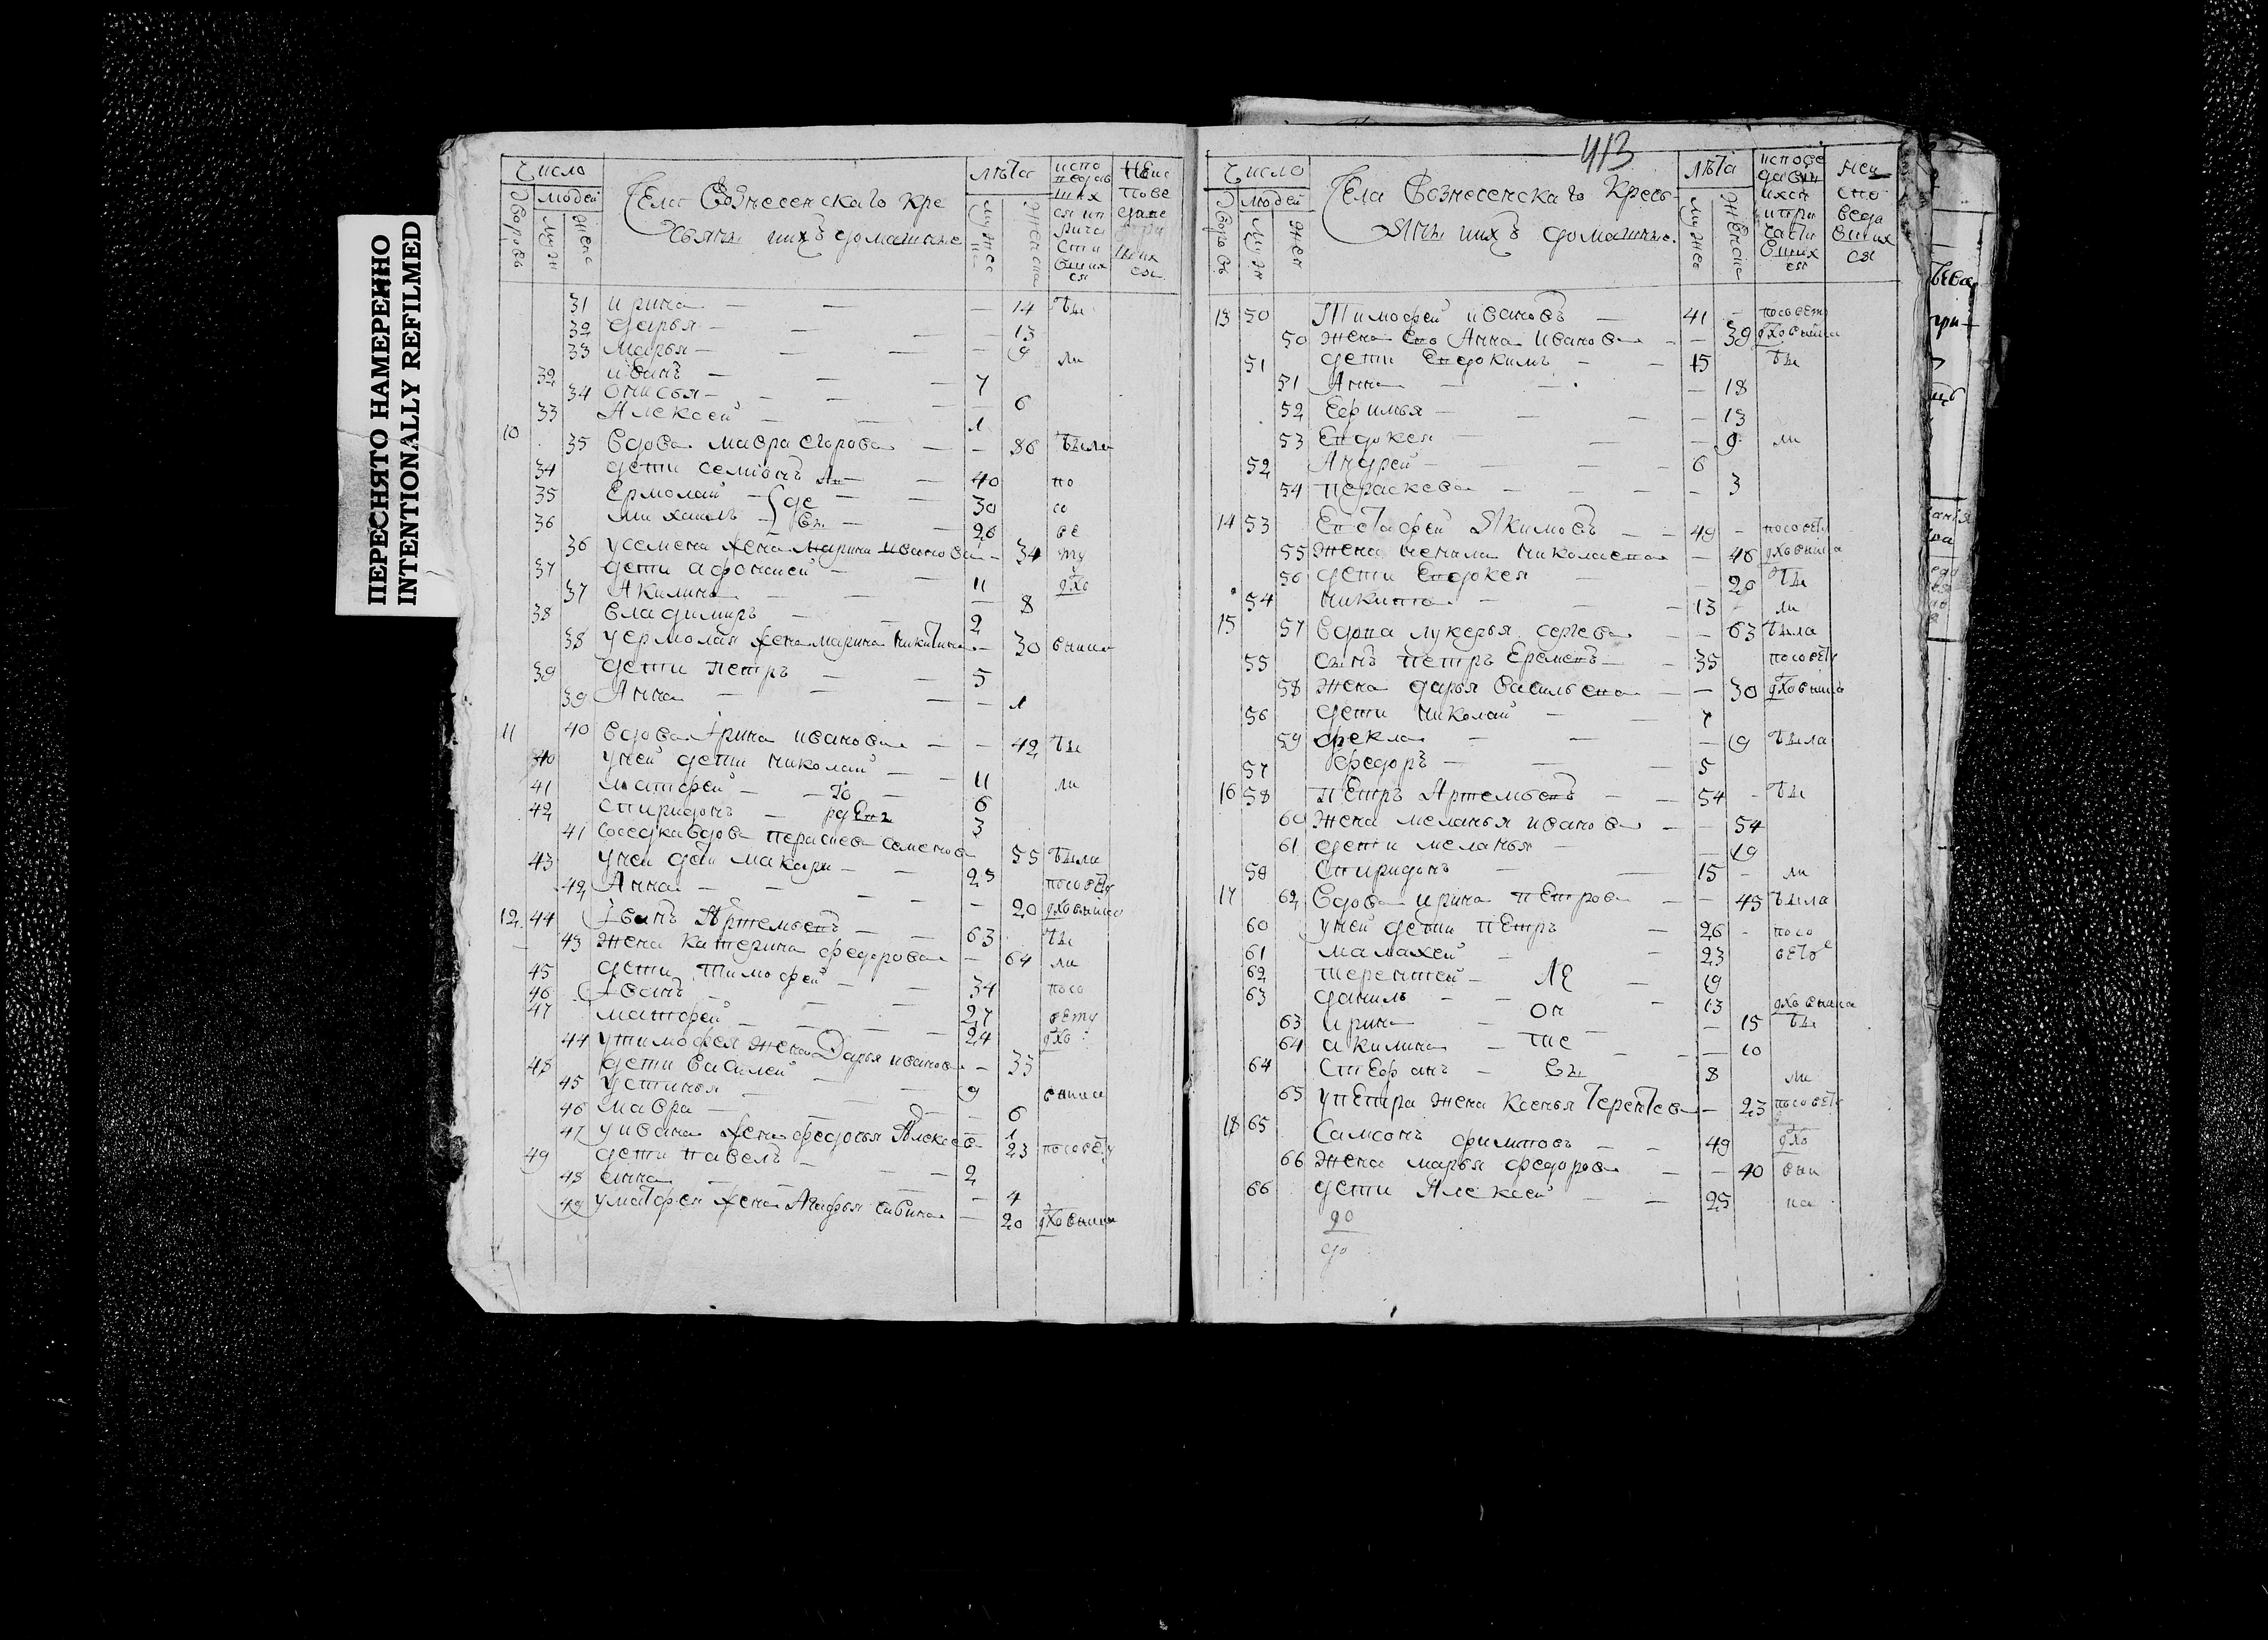 ПЕРЕСНЯТО НАМЕРЕННО
INTENTIONALLY REFILMED
число
дворовъ
людей
муж
женс
Села Вознесенскаго кре
стьяне ихъ домашние
лѣта
мужес
женска
31 ирина — — — 14 бы
32 дарья — — — 13
33 марья — — — 9 ли
32 иванъ — — 7
34 онисья — — — 6
33 Алексей — — 1
10 35 вдова мавра егорова — — 86 была
34 дети семионъ — — 40 по
35 Ермолай — де — 30 со
36 михаилъ — вы — 26 ве
36 у семена жена марина иванова — 34 ту
37 дети афонасей — — 11 дхо
37 Акилина — — — 8
38 владимиръ — — 2
38 у ермолая жена марина никитина — 30 вника
39 дети петръ — — 5
39 Анна — — — 1
11 40 вдова Ирина иванова — — 42 бы
40 у ней дети николай — — 11 ли
41 матфей — 6
42 спиридонъ — 3
41 соседка вдова параскева семенова 55 была
43 у ней дети макаръ — — 25 посовету
42 Анна — — — 20 дховника
12 44 Иванъ Артемьевъ — — 63 бы
43 жена катерина федорова — 64 ли
45 дети тимофей — — 34 посо
46 Иванъ — — 27 вету
47 матфей — — 24 дхо
44 у тимофея жена Дарья иванова — 33
48 дети василей — — 9 вника
45 устинья — — — 6
46 мавра — — — 1
47 у ивана жена федосья Алексеева 23 посовету
49 дети павелъ — — 2
48 анна — — — 4
49 у матфея жена Агафья савина — 20 дховника
413
число
дворовъ
людей
муж
жен
Села Вознесенскаго Кресть
яне ихъ домашние.
лѣта
мужес
женска
исповедавшихся и причастившихся
неисповедавшихся
13 50 Тимофей ивановъ — 41 — посовету
50 жена ево Анна Иванова — — 39 дховника
51 дети Евдокимъ — — 15 бы
51 Анна — — — 18
52 Ефимья — — — 13
53 Евдокея — — — 9 ли
52 Андрей — — — 6
54 параскева — — — 3
14 53 Евстафей Якимовъ — — 49 — посовету
55 жена ненила николаевна — 46 дховника
56 дети Евдокея — — 20 бы
54 никита — — 13 — ли
15 57 вдова лукерья сергеева — — 63 была
55 сынъ петръ Еремеевъ — — 35 посовету
58 жена дарья васильевна — — 30 дховника
56 дети николай — — 7
59 фекла — — — 9 была
57 федоръ — — 5
16 58 петръ Артемьевъ — — 54 — бы
60 жена меланья иванова — — 54
61 дети меланья — — 19
59 Спиридонъ — — 15 — ли
17 62 вдова ирина петрова — — 45 была
60 у ней дети петръ — 26 — посо
61 малахей — — 23 вето
62 терентей — Ле — 19
63 данилъ — — Он — 13 дховника
63 ирина — — — 15 бы
64 акилина — тье — — 10
64 Стефанъ — въ 8 ли
65 у петра жена ксенья Терентева — 23 посовету
18 65 Самсонъ филиповъ — — 49 дхо
66 жена марья федорова — — 40 вни
66 дети Алексей — — 25 ка
до
до